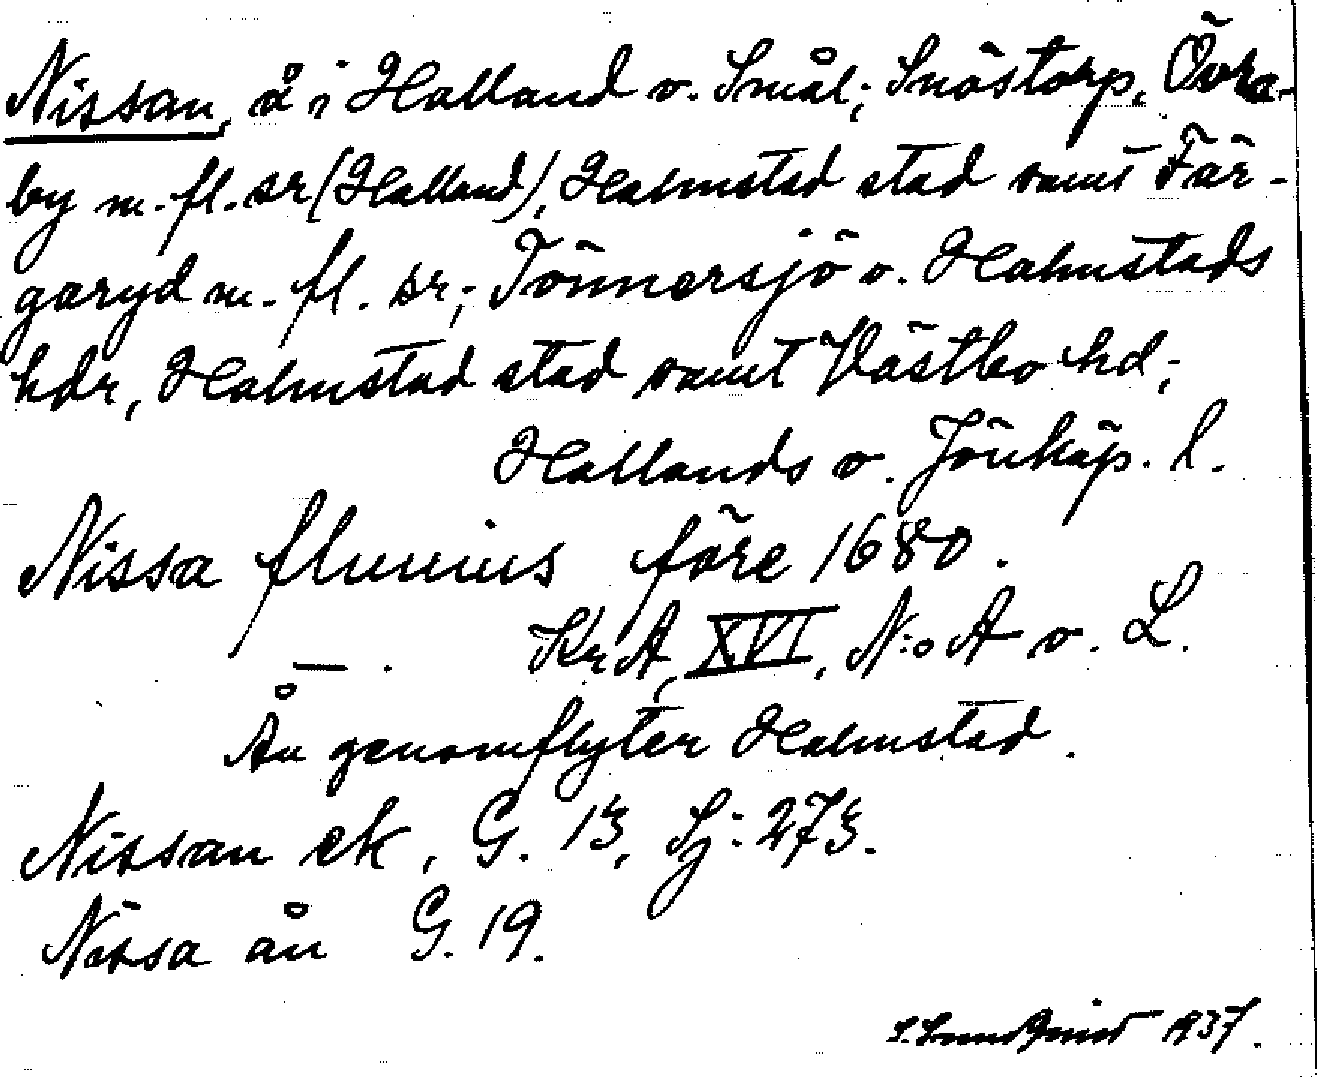 Nissan, å i Halland o. Smål.; Snöstorp, Övra-
by m. fl. snr (Halland), Halmstad stad samt Fär-
garyd m. fl. snr; Tönnersjö o. Halmstads
hdr, Halmstad stad samt Västbo hd;
Hallands o. Jönköp. l.
Nissa fluuius före 1680.
— . KrA, XVI, N:o A o. L.
Ån genomflyter Halmstad.
Nissan ek, G. 13, Sj: 273.
Nissa ån G. 19.
S. Lundqvist 1937.